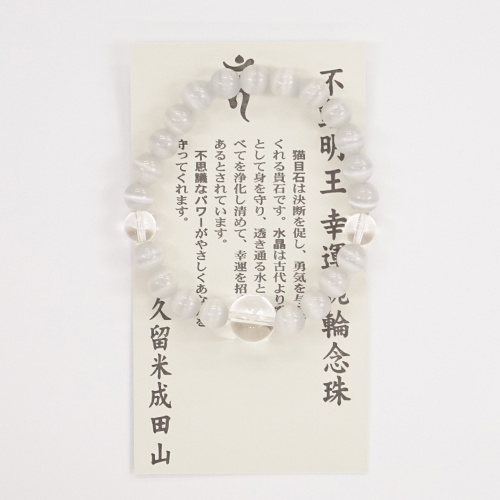 不 明王 幸運 腕輪念珠
猫目石は決断を促し、勇気を
くれる貴石です。水晶は古代より
として身を守り、透き通る水と
べてを浄化し清めて、幸運を招
あるとされています。
不思議なパワーがやさしくあ を
守ってくれます。
久留米成田山